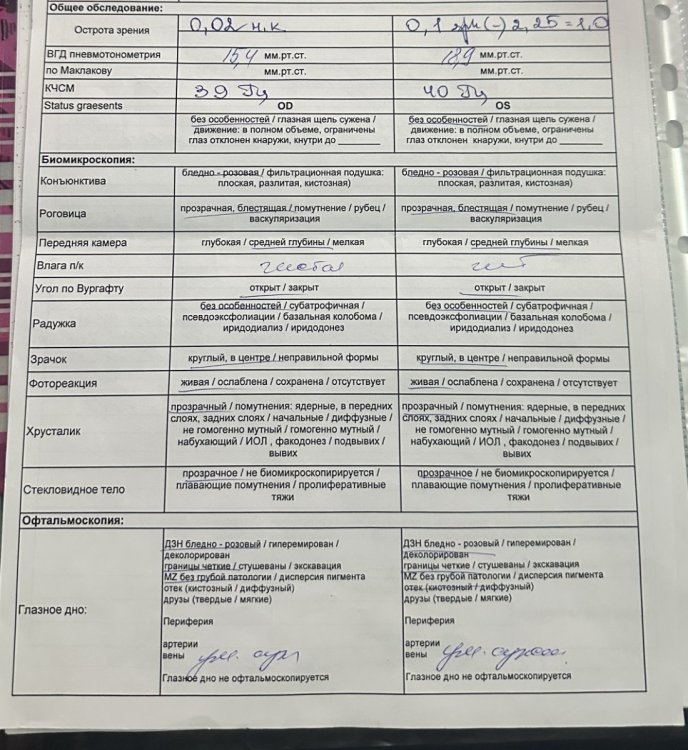 Общее обследование:
Острота зрения 0,02 н.к 0,1 sph (-) 2,25 = 1,0
ВГД пневмотонометрия 15,4 мм.рт.ст. 18,9 мм.рт.ст.
по Маклакову мм.рт.ст. мм.рт.ст.
КЧСМ 39 Гц 40 Гц
Status graesents OD OS
без особенностей / глазная щель сужена / без особенностей / глазная щель сужена /
движение: в полном объеме, ограничены движение: в полном объеме, ограничены
глаз отклонен кнаружи, кнутри до ________ глаз отклонен кнаружи, кнутри до ________
Биомикроскопия:
Конъюнктива бледно - розовая / фильтрационная подушка: бледно - розовая / фильтрационная подушка:
плоская, разлитая, кистозная) плоская, разлитая, кистозная)
Роговица прозрачная, блестящая / помутнение / рубец / прозрачная, блестящая / помутнение / рубец /
васкуляризация васкуляризация
Передняя камера глубокая / средней глубины / мелкая глубокая / средней глубины / мелкая
Влага п/к чистая
Угол по Вургафту открыт / закрыт открыт / закрыт
Радужка без особенностей / субатрофичная / без особенностей / субатрофичная /
псевдоэксфолиации / базальная колобома / псевдоэксфолиации / базальная колобома /
иридодиализ / иридодонез иридодиализ / иридодонез
Зрачок круглый, в центре / неправильной формы круглый, в центре / неправильной формы
Фотореакция живая / ослаблена / сохранена / отсутствует живая / ослаблена / сохранена / отсутствует
Хрусталик прозрачный / помутнения: ядерные, в передних прозрачный / помутнения: ядерные, в передних
слоях, задних слоях / начальные / диффузные / слоях, задних слоях / начальные / диффузные /
не гомогенно мутный / гомогенно мутный / не гомогенно мутный / гомогенно мутный /
набухающий / ИОЛ , факодонез / подвывих / набухающий / ИОЛ , факодонез / подвывих /
вывих вывих
Стекловидное тело прозрачное / не биомикроскопируется / прозрачное / не биомикроскопируется /
плавающие помутнения / пролиферативные плавающие помутнения / пролиферативные
тяжи тяжи
Офтальмоскопия:
Глазное дно:
ДЗН бледно - розовый / гиперемирован / ДЗН бледно - розовый / гиперемирован /
деколорирован деколорирован
границы четкие / стушеваны / экскавация границы четкие / стушеваны / экскавация
MZ без грубой патологии / дисперсия пигмента MZ без грубой патологии / дисперсия пигмента
отек (кистозный / диффузный) отек (кистозный / диффузный)
друзы (твердые / мягкие) друзы (твердые / мягкие)
Периферия Периферия
артерии артерии
вены вены
Глазное дно не офтальмоскопируется Глазное дно не офтальмоскопируется